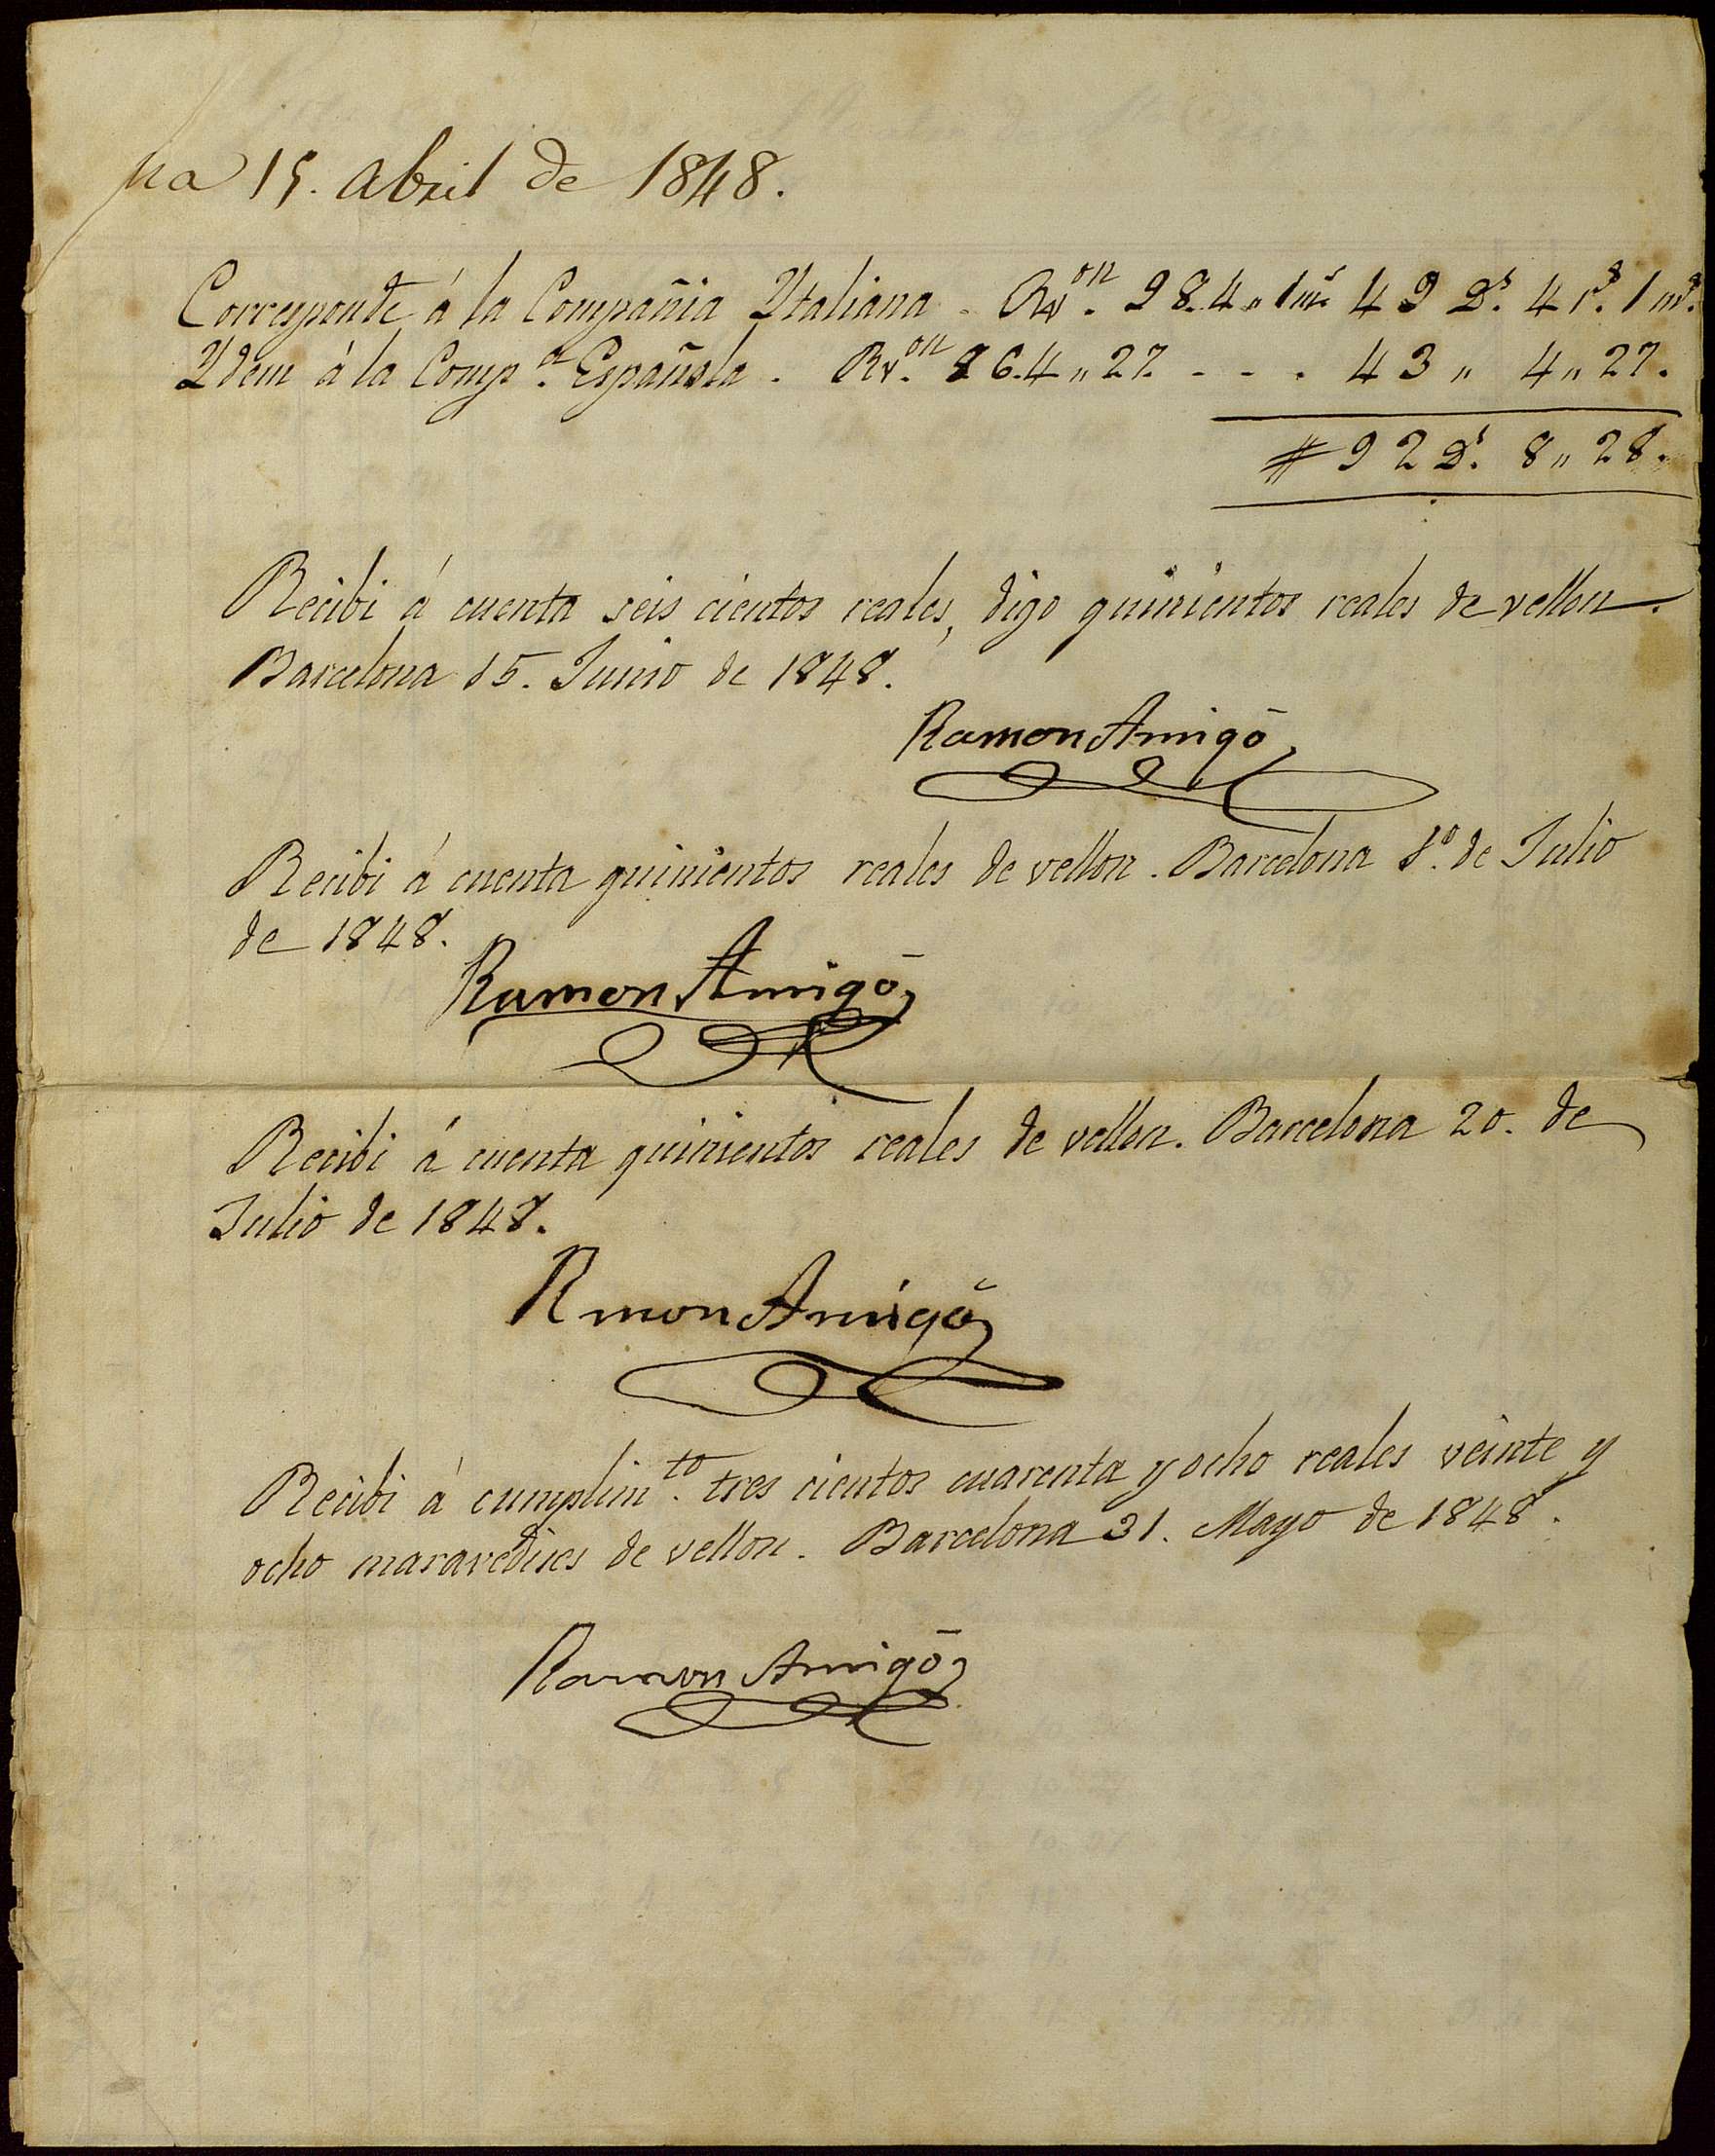 na 15. abril de 1848.
Corresponde á la Compañia Ytaliana. Rv.on 984„1 ms. 49 Ds. 4 rs. 1 ms.
Ydem á la Comp.a Española. Rv.on 864„27. - - . 43 „ 4„27.
# 92 Ds. 8„28.
Recibi á cuenta seis cientos reales, digo quinientos reales de vellon.
Barcelona 15. Junio de 1848.
Ramon Amigó
Recibi á cuenta quinientos reales de vellon. Barcelona 1.o de Julio
de 1848.
Ramon Amigó
Recibi á cuenta quinientos reales de vellon. Barcelona 20. de
Julio de 1848.
Rmon Amigó
Recibi á cumplim.to tres cientos cuarenta y ocho reales veinte y
ocho maravedises de vellon. Barcelona 31. Mayo de 1848.
Ramon Amigó